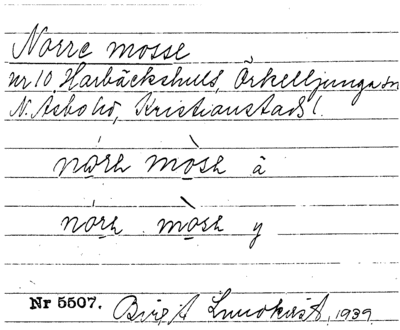 Norre mosse
nr 10 Harbäckshult, Örkelljunga sn
N. Åsbo hd, Kristianstads l.
nórh mòsh ä
nórh mòsh y
Nr 5507. Birgit Lundkvist, 1939